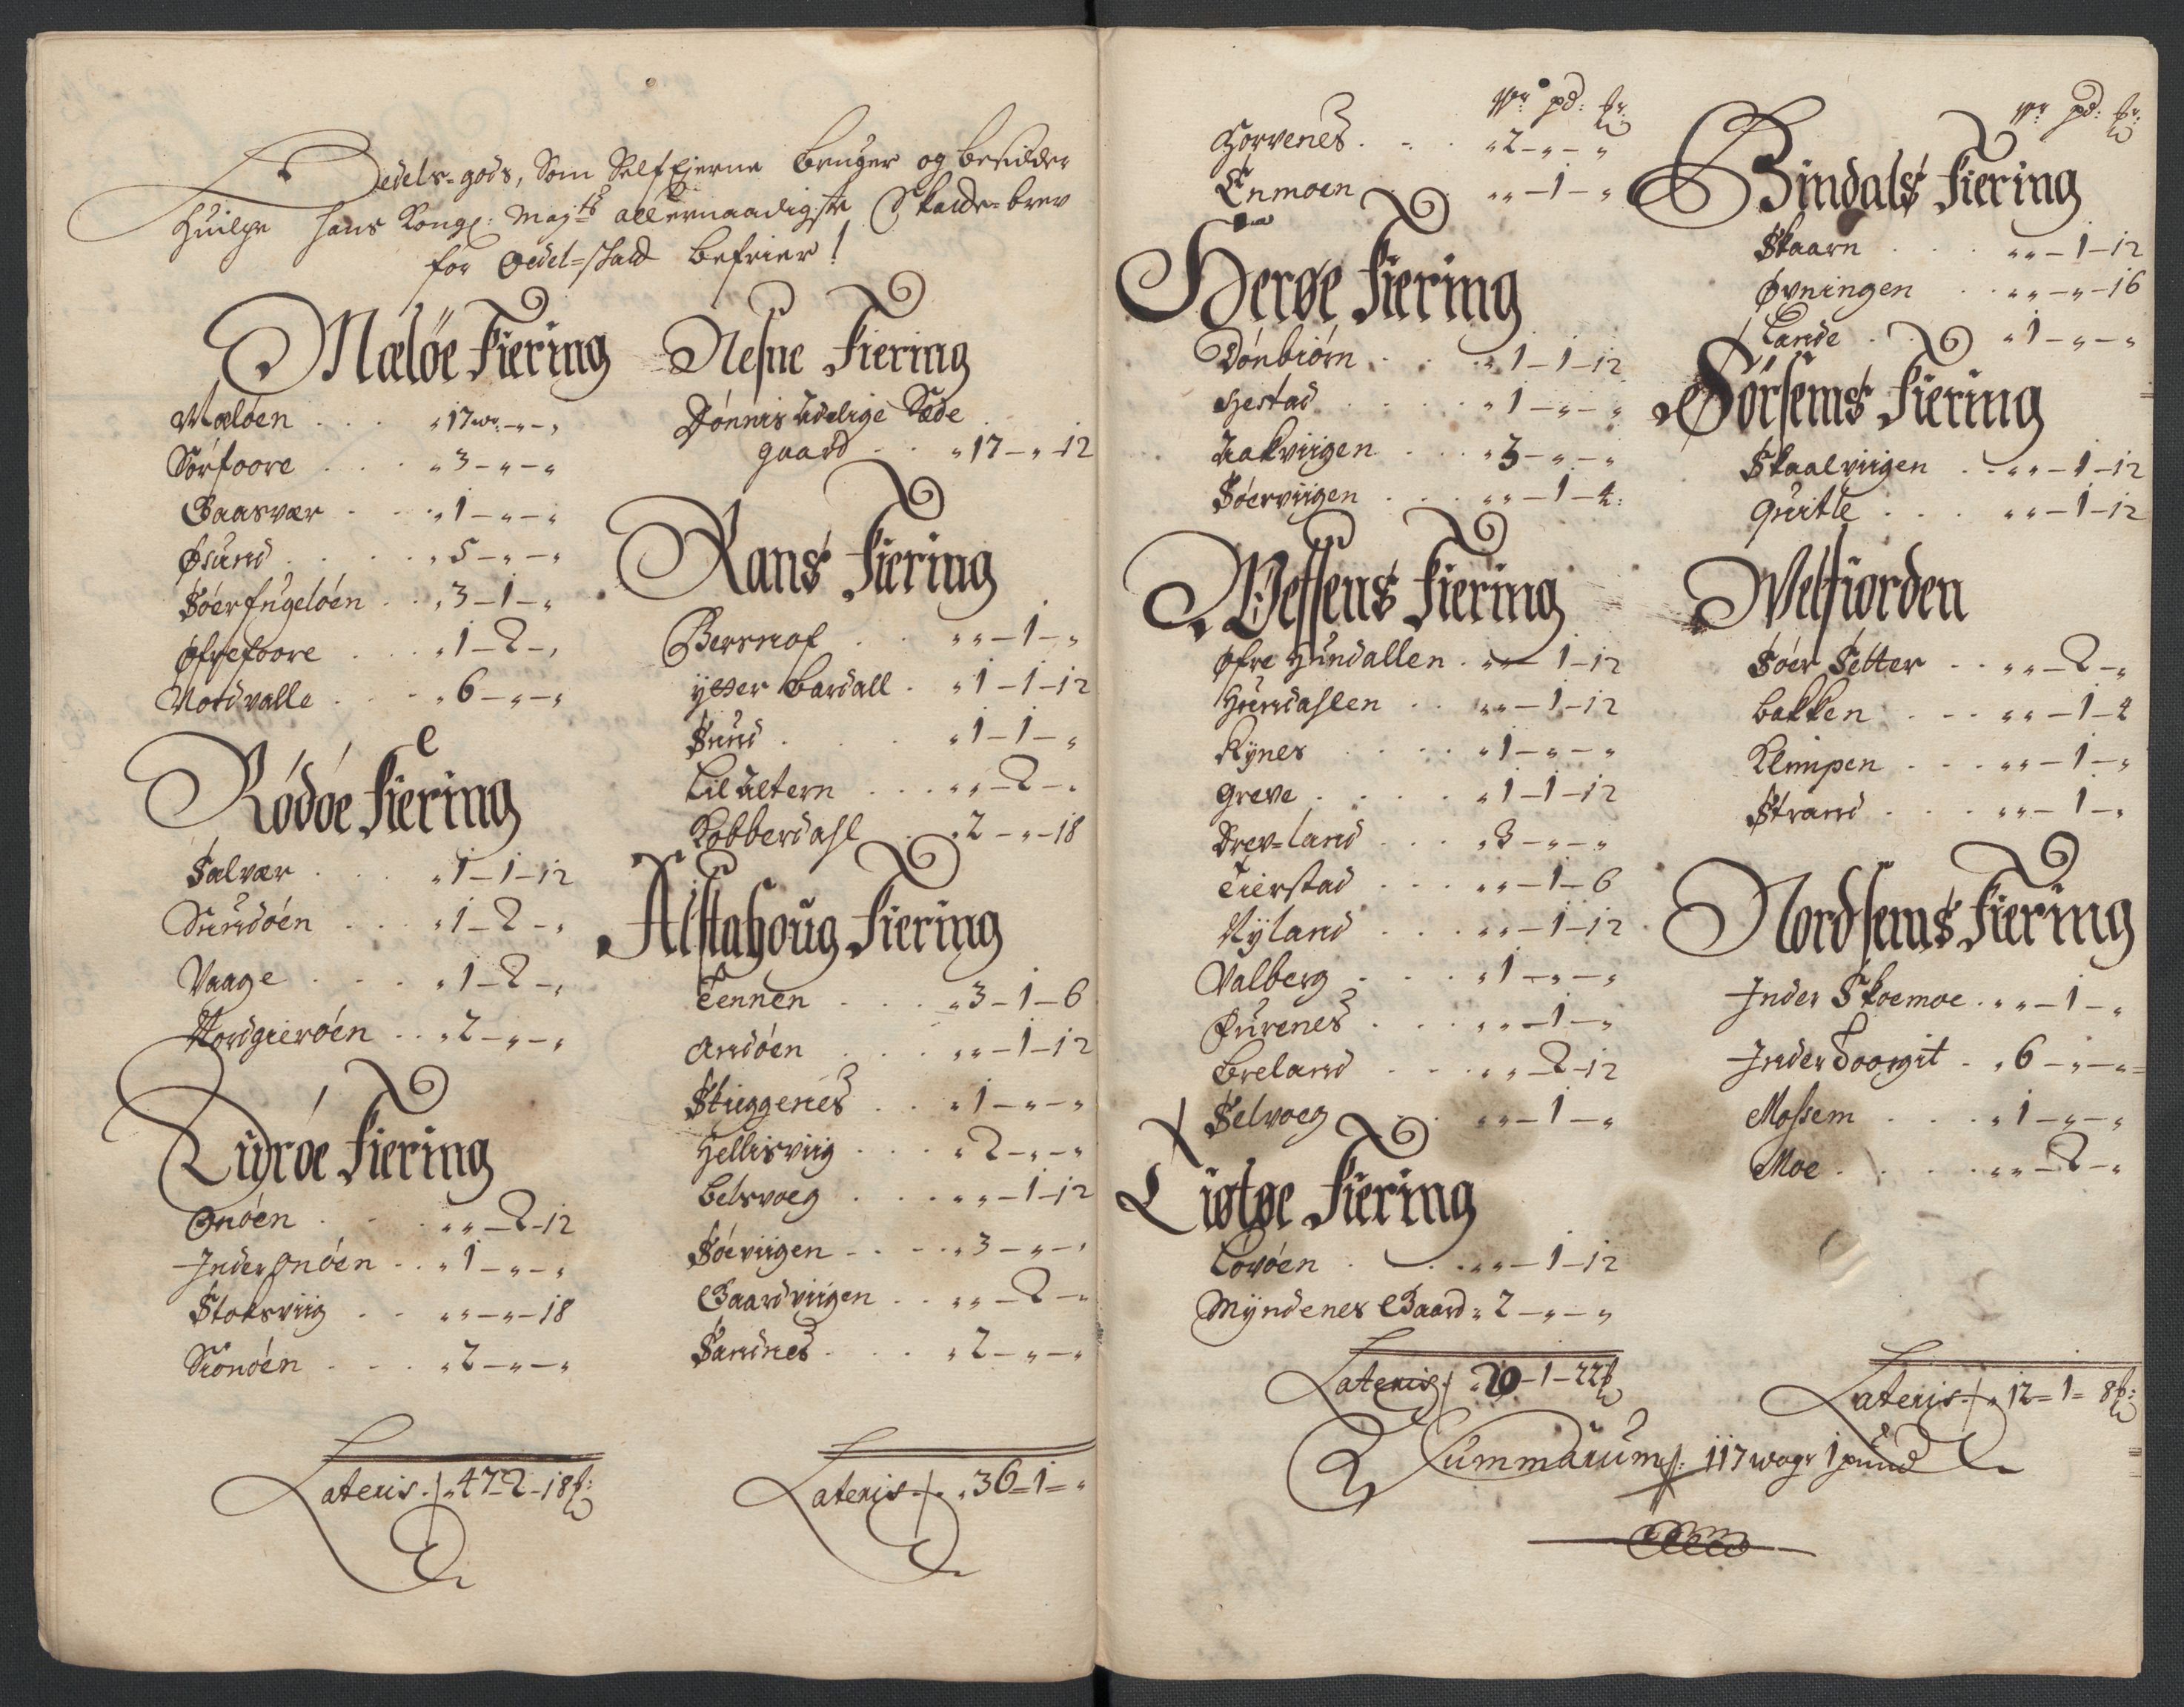 Oedels-gods, Som Selffejerne bruger og besidder
Huilche hans Kongl: Mayts allernaadigste Skatte-brev
for Oedel-skatt befrier!
Næløe Fiering
Næløen . . . „17w–„–„
Sørfoore . . . „3–„–„
Baasvær . . . „1–„–„
Øsund . . . . „5–„–„
Søerfugeløen . . „3–1–„
Øfrefoore . . „1–2–„
Nordvalle . . . „6–„–„
Rødøe Fiering
Salvær . . . „1–1–12
Sundøen . . . „1–2–„
Vaage . . . . „1–2–„
Nordgierøen . . „2–„–„
Lurøe Fiering
Onøen . . . „„–2–12
Inder Onøen . . „1–„–„
Stoksviig . . „„–„–18
Sionøen . . . „2–„–„
Lateris „47–2–18
Nesne Fiering
Dønnis Adelige Sæde
gaard . . „17–„–12
Rans Fiering
Bersnof . . „„–1–„
ytter Bardall . „1–1–12
Sund . . . „1–1–„
Lil Altern . . . „„–2–„
Kobberdahl . „2–„–18
Alstahoug Fiering
Tennen . . . „3–1–6
Andøen . . . „„–1–12
Stiggenes . . „1–„–„
Hellisviig . . . „2–„–„
Belsvoeg . . . „„–1–12
Søeviigen . . . „3–„–„
Baardviigen . . „„–2–„
Sandnes . . . „2–„–„
Lateris „36–1–„
Wr pd:
Horvenes . . . „2–„–„
Enmoen „„–1–„
Herøe Fiering
Dønbiørn . . „1–1–12
Hestad . . . . „1–„–„
Aakviigen . . . „3–„–„
Søerviigen . . . „„–1–4:
Wefsens Fiering
Øfre Hundallen . „„–1–12
Hundahlen . . „„–1–12
Rynes . . . . „1–„–„
Greve . . . . „1–1–12
Drev-land . . . „3–„–„
Eierstad . . . „„–1–6
Nyland . . . „„–1–12
Valberg . . . „1–„–„
Furenes . . . „„–1–„
Breland . . . „„–2–12
Selvoeg . „„–1–„
Tiøtøe Fiering
Lovøen . . . „„–1–12
Myndenes Gaard „2–„–„
Lateris „20–1–22
Wr pd:
Bindals Fiering
Skaarn . . . „„–1–12
Øvningen . . „„–„–16
Lande . . „1–„–„
Sørsems Fiering
Skaalviigen . . „„–1–12
Quitle . . . „„–1–12
Velfiorden
Søer Setter . . „„–2–„
Bakken . . . „„–1–4
Klimpen . . . „„–1–„
Strand . . . „„–1–„
Nordsems Fiering
Inder Skoemoe . „„–1–„
Inder . „6–„–„
Mossem . . . „1–„–„
Moe . . . „„–2–„
Lateris „12–1–8
Summarum: 117 woger 1 pund